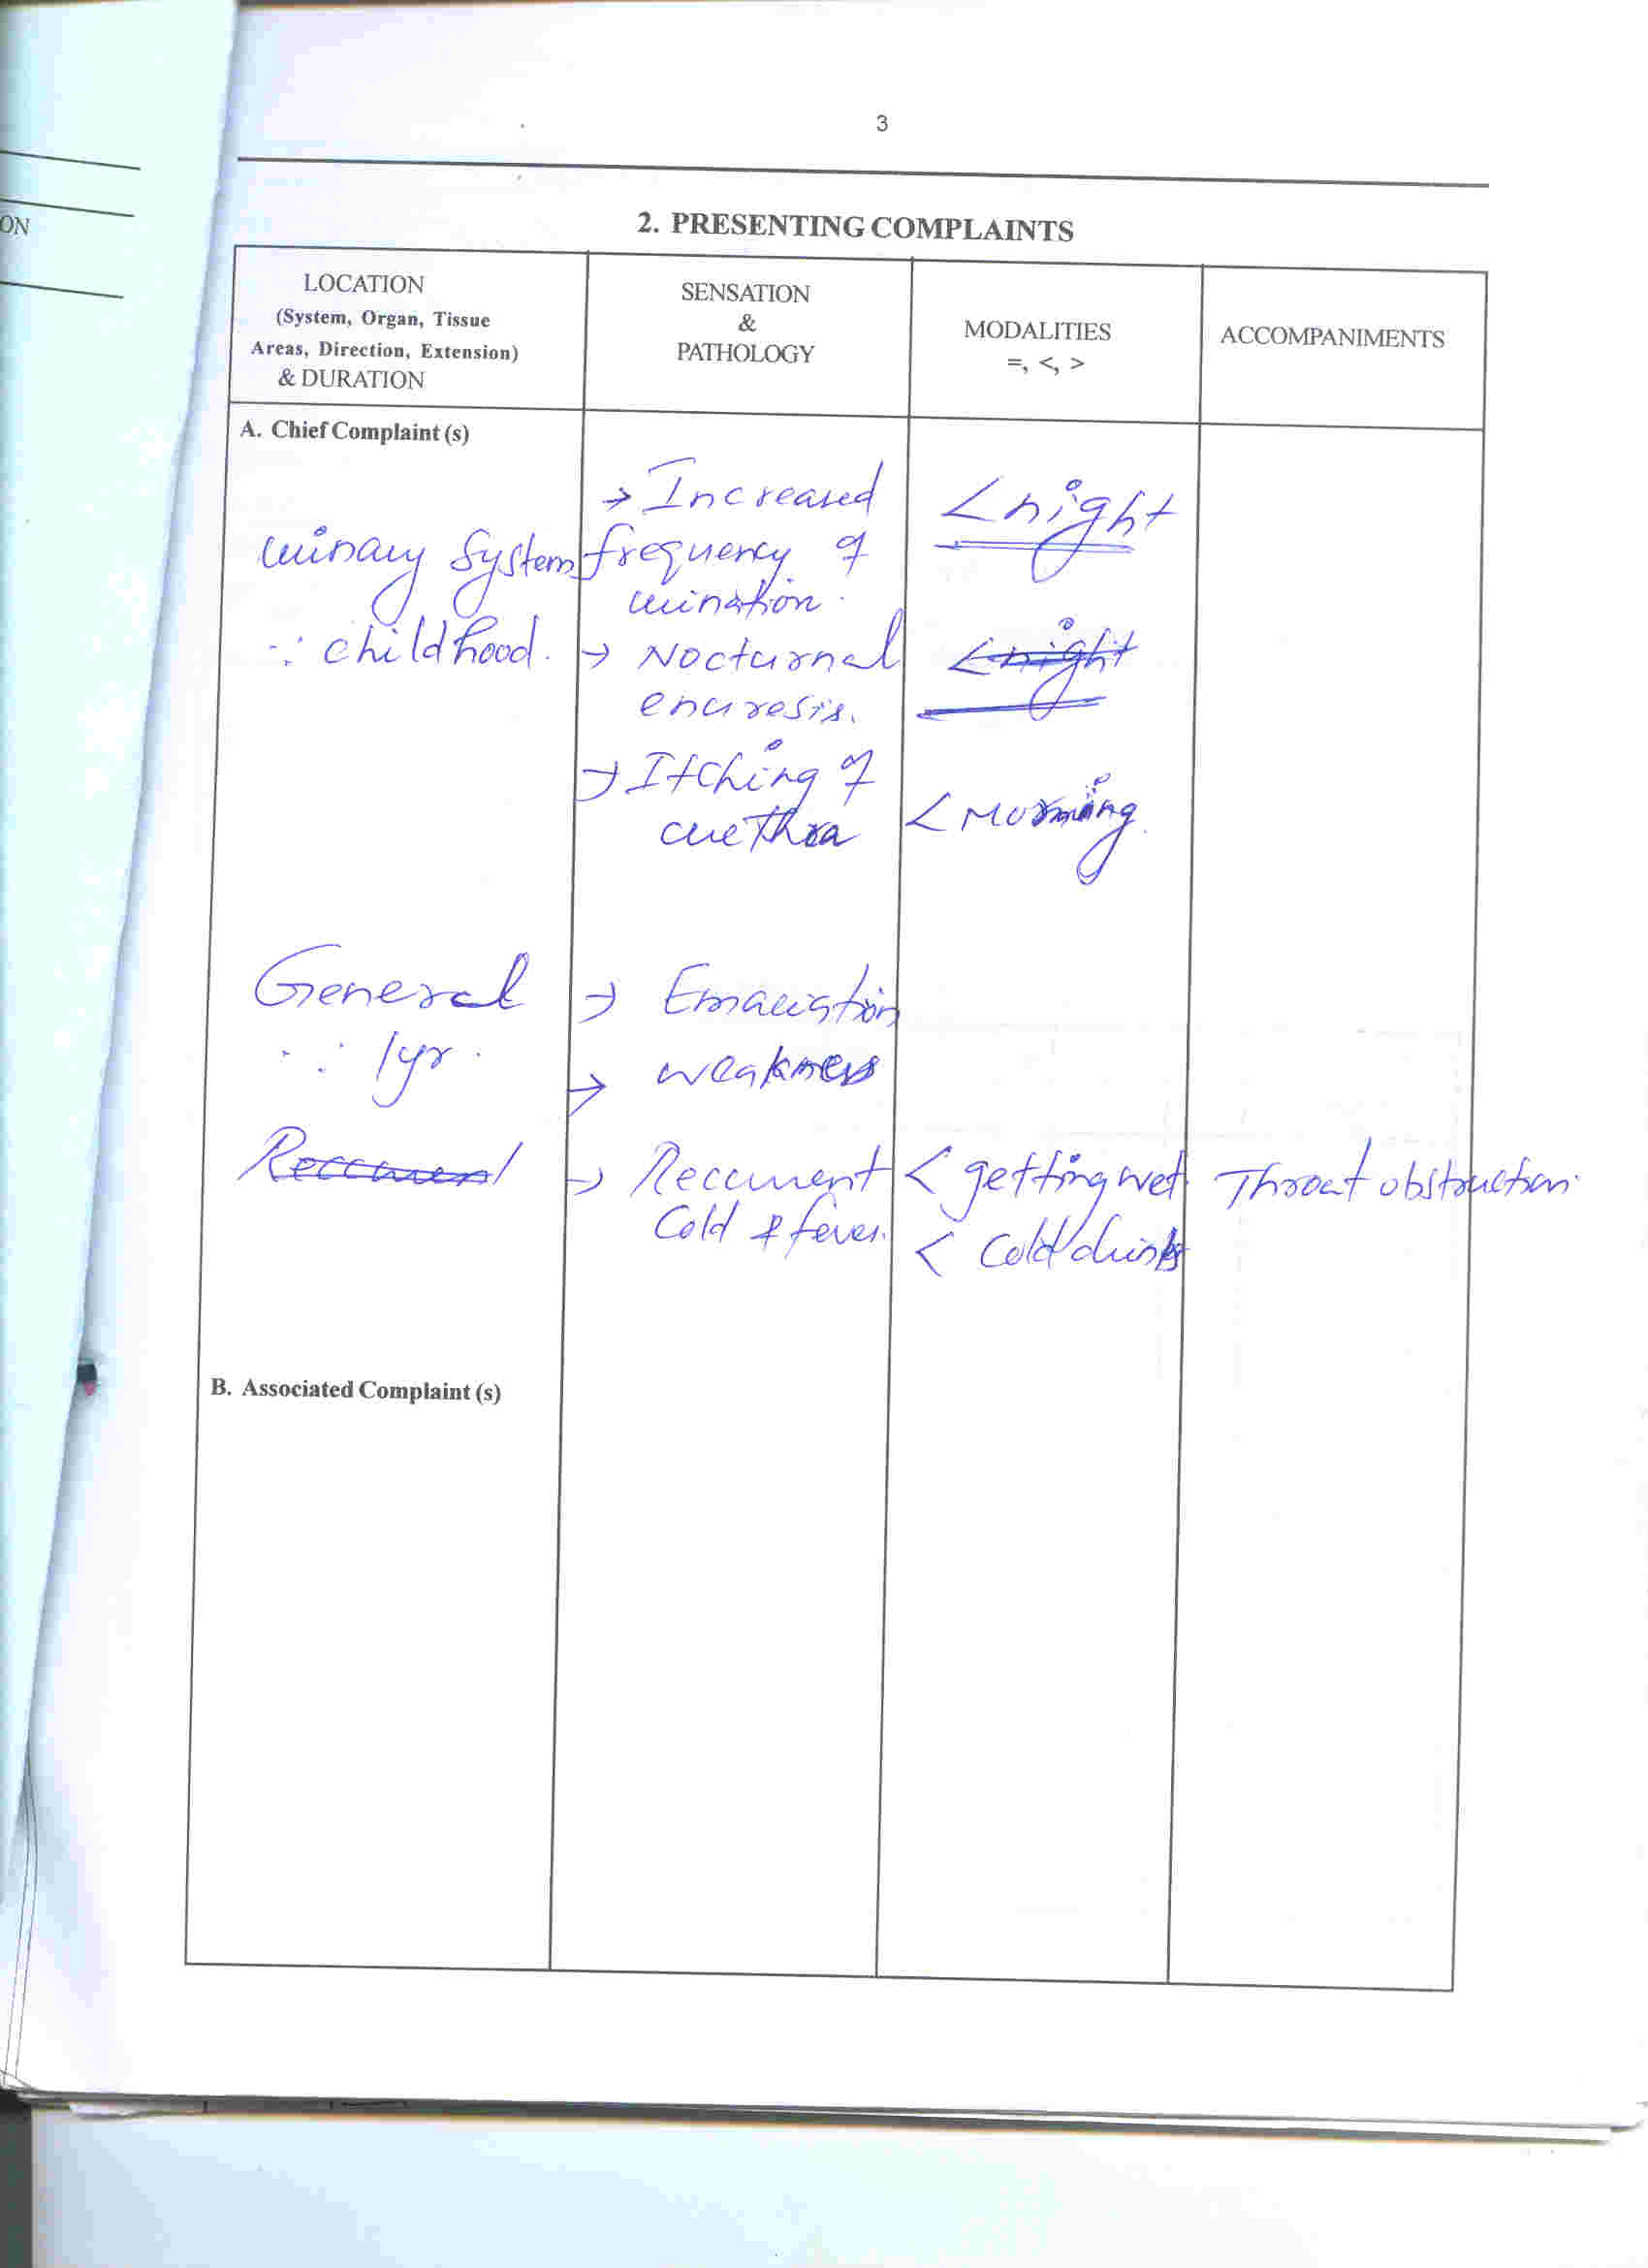 3
ON
2. PRESENTING COMPLAINTS
LOCATION
(System, Organ, Tissue
Areas, Direction, Extension)
& DURATION
SENSATION
&
PATHOLOGY
MODALITIES
=, <, >
ACCOMPANIMENTS
A. Chief Complaint (s)
urinary system
∵ childhood.
→ Increased
frequency of
urination.
< night
→ Nocturnal
enuresis.
< night
→ Itching of
urethra
< Morning.
General
∵ 1yr.
→ Emaciation
→ weakness
Recurrent
→ Recurrent
Cold & fever.
< getting wet.
< Cold drinks
Throat obstruction.
B. Associated Complaint (s)